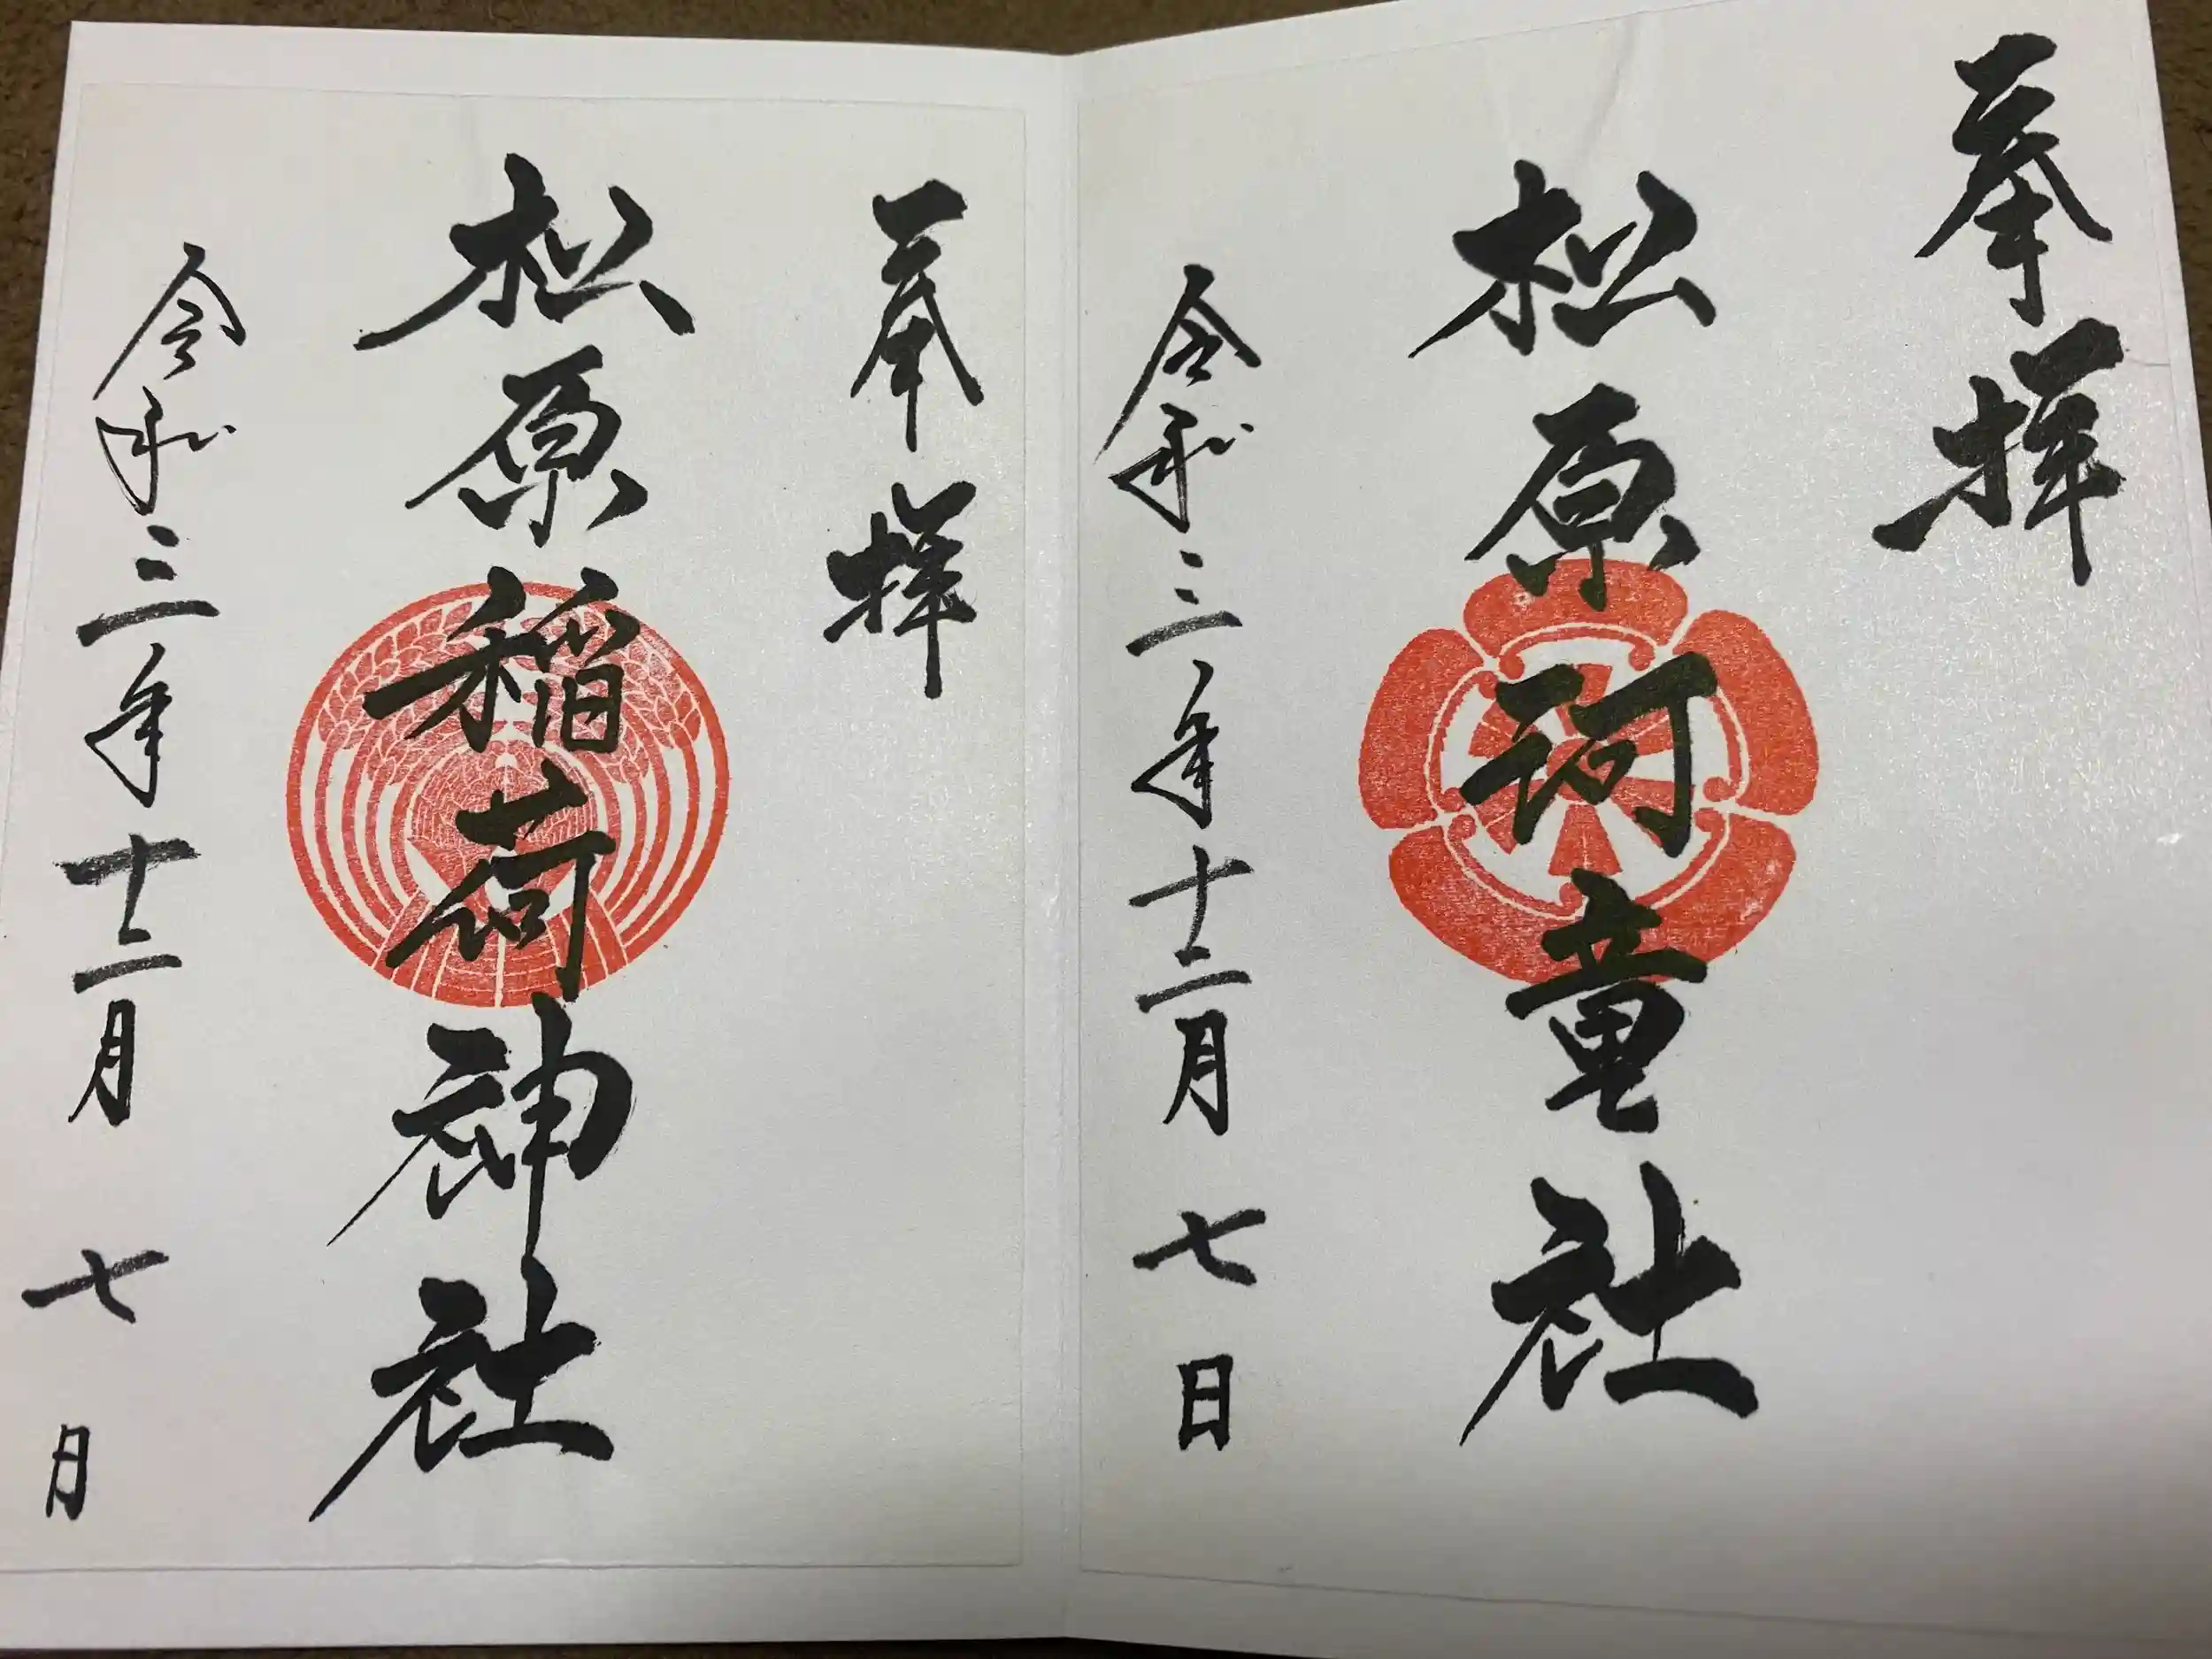 奉拝
松原河童社
令和三年十二月 七日
奉拝
松原稲荷神社
令和三年十二月 七日